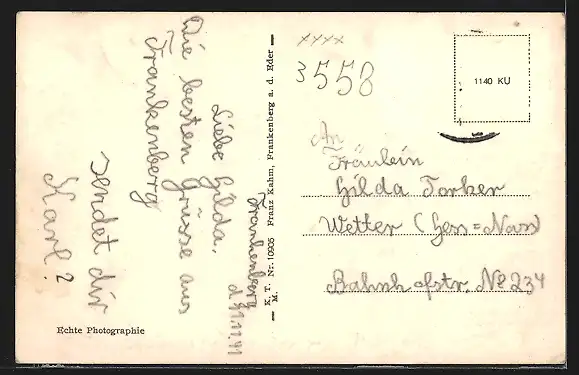 Frankenberg
d. 11.11.41
Liebe Gilda,
Die besten Grüsse aus
Frankenberg
sendet dir
Karl?
Echte Photographie
K. T. M. Nr. 10905 Franz Kahm, Frankenberg a. d. Eder
xxxx
3558
1140 KU
An
Fräulein
Gilda Torker
Wetter (Hess=Nass)
Bahnhofstr. No 234